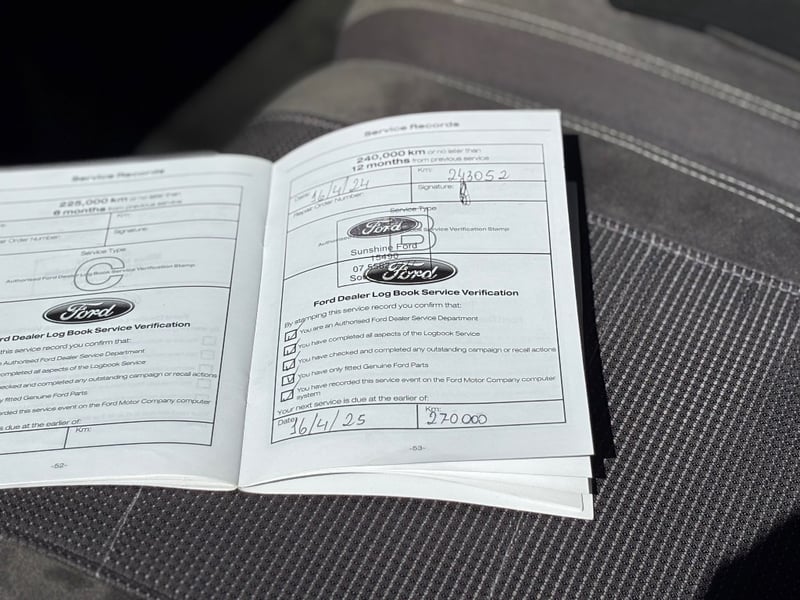 Service Records
225,000 km or no later than
6 months from previous service
Km:
Order Number:
Signature:
Service Type:
C
Authorised Ford Dealer Log Book Service Verification Stamp
Ford
rd Dealer Log Book Service Verification
this service record you confirm that:
Authorised Ford Dealer Service Department
completed all aspects of the Logbook Service
checked and completed any outstanding campaign or recall actions
y fitted Genuine Ford Parts
orded this service event on the Ford Motor Company computer
is due at the earlier of:
Km:
-52-
Service Records
240,000 km or no later than
12 months from previous service
Date: 16/4/24
Km: 243052
Repair Order Number:
Signature:
Service Type:
B
Ford
Authorised
Service Verification Stamp
Sunshine Ford
Ford
Ford Dealer Log Book Service Verification
By stamping this service record you confirm that:
You are an Authorised Ford Dealer Service Department
You have completed all aspects of the Logbook Service
You have checked and completed any outstanding campaign or recall actions
You have only fitted Genuine Ford Parts
You have recorded this service event on the Ford Motor Company computer
system
Your next service is due at the earlier of:
Date: 16/4/25
Km: 270 000
-53-